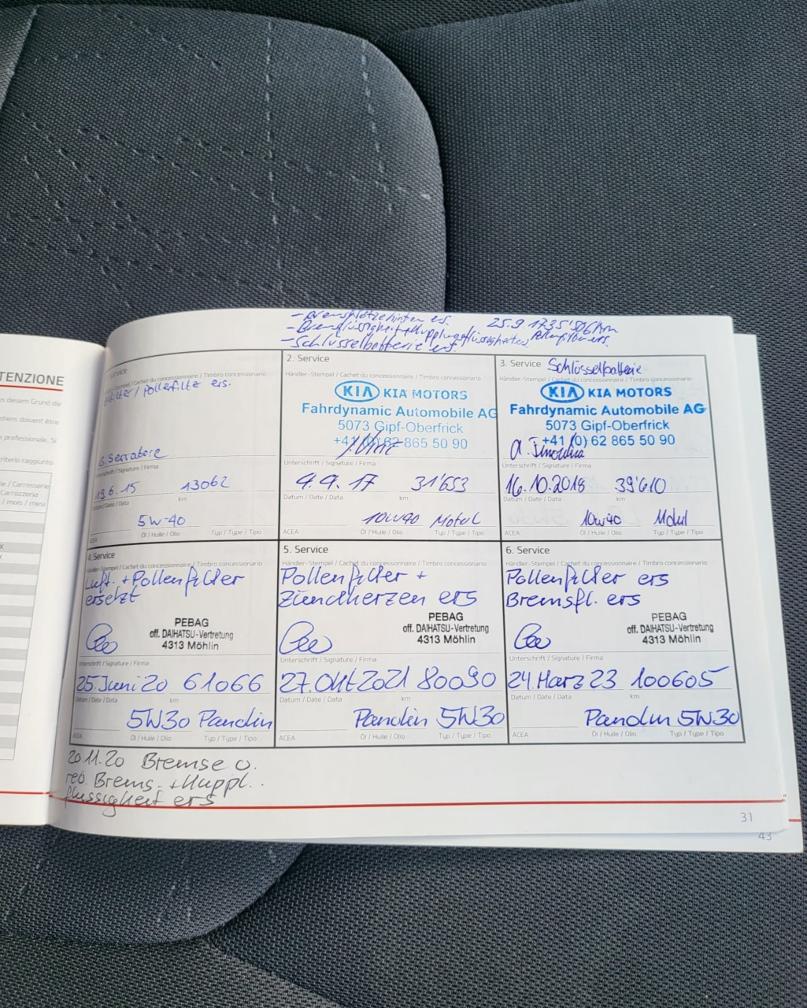 TENZIONE
25.9.17 35'506 km
- Schlüsselbatterie ers.
/ Pollenfilter ers.
G. Serratore
Unterschrift / Signature / Firma
19.6.15 13062
km
5W-40
ACEA Öl / Huile / Olio Typ / Type / Tipo
2. Service
Händler-Stempel / Cachet du concessionnaire / Timbro concessionario
KIA KIA MOTORS
Fahrdynamic Automobile AG
5073 Gipf-Oberfrick
+41 (0) 62 865 50 90
Unterschrift / Signature / Firma
4.9.17 31'653
Datum / Date / Data km
10W40 Motul
ACEA Öl / Huile / Olio Typ / Type / Tipo
3. Service Schlüsselbatterie
Händler-Stempel / Cachet du concessionnaire / Timbro concessionario
KIA KIA MOTORS
Fahrdynamic Automobile AG
5073 Gipf-Oberfrick
+41 (0) 62 865 50 90
Unterschrift / Signature / Firma
16.10.2018 39'610
Datum / Date / Data km
10W40 Motul
ACEA Öl / Huile / Olio Typ / Type / Tipo
4. Service
Händler-Stempel / Cachet du concessionnaire / Timbro concessionario
Luft. + Pollenfilter
ersetzt
PEBAG
off. DAIHATSU-Vertretung
4313 Möhlin
Unterschrift / Signature / Firma
25.Juni 20 61066
Datum / Date / Data km
5W30 Pandin
ACEA Öl / Huile / Olio Typ / Type / Tipo
5. Service
Händler-Stempel / Cachet du concessionnaire / Timbro concessionario
Pollenfilter +
Zündkerzen ers
PEBAG
off. DAIHATSU-Vertretung
4313 Möhlin
Unterschrift / Signature / Firma
27.Okt 2021 80090
Datum / Date / Data km
Pandin 5W30
ACEA Öl / Huile / Olio Typ / Type / Tipo
6. Service
Händler-Stempel / Cachet du concessionnaire / Timbro concessionario
Pollenfilter ers
Bremsfl. ers
PEBAG
off. DAIHATSU-Vertretung
4313 Möhlin
Unterschrift / Signature / Firma
24 März 23 100605
Datum / Date / Data km
Pandin 5W30
ACEA Öl / Huile / Olio Typ / Type / Tipo
20.11.20 Bremse v.
Brems. + Kuppl.
flüssigkeit ers
31
43